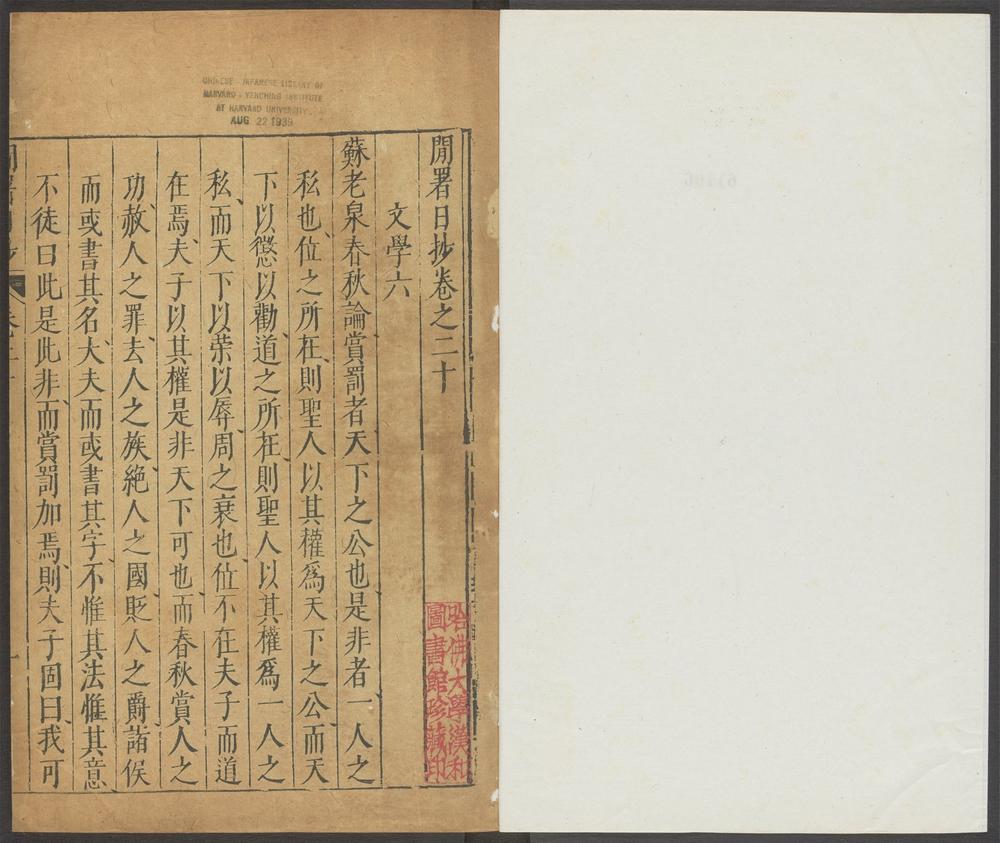 CHINESE - JAPANESE LIBRARY OF
HARVARD - YENCHING INSTITUTE
AT HARVARD UNIVERSITY
AUG 22 1939
閒署日抄卷之二十
文學六
蘇老泉春秋論賞罰者天下之公也是非者一人之
私也位之所在則聖人以其權爲天下之公而天
下以懲以勸道之所在則聖人以其權爲一人之
私而天下以荣以辱周之衰也位不在夫子而道
在焉夫子以其權是非天下可也而春秋賞人之
功赦人之罪去人之族絕人之國貶人之爵諸侯
而或書其名大夫而或書其字不惟其法惟其意
不徒曰此是此非而賞罰加焉則夫子固曰我可
哈佛大學漢和
圖書館珍藏印